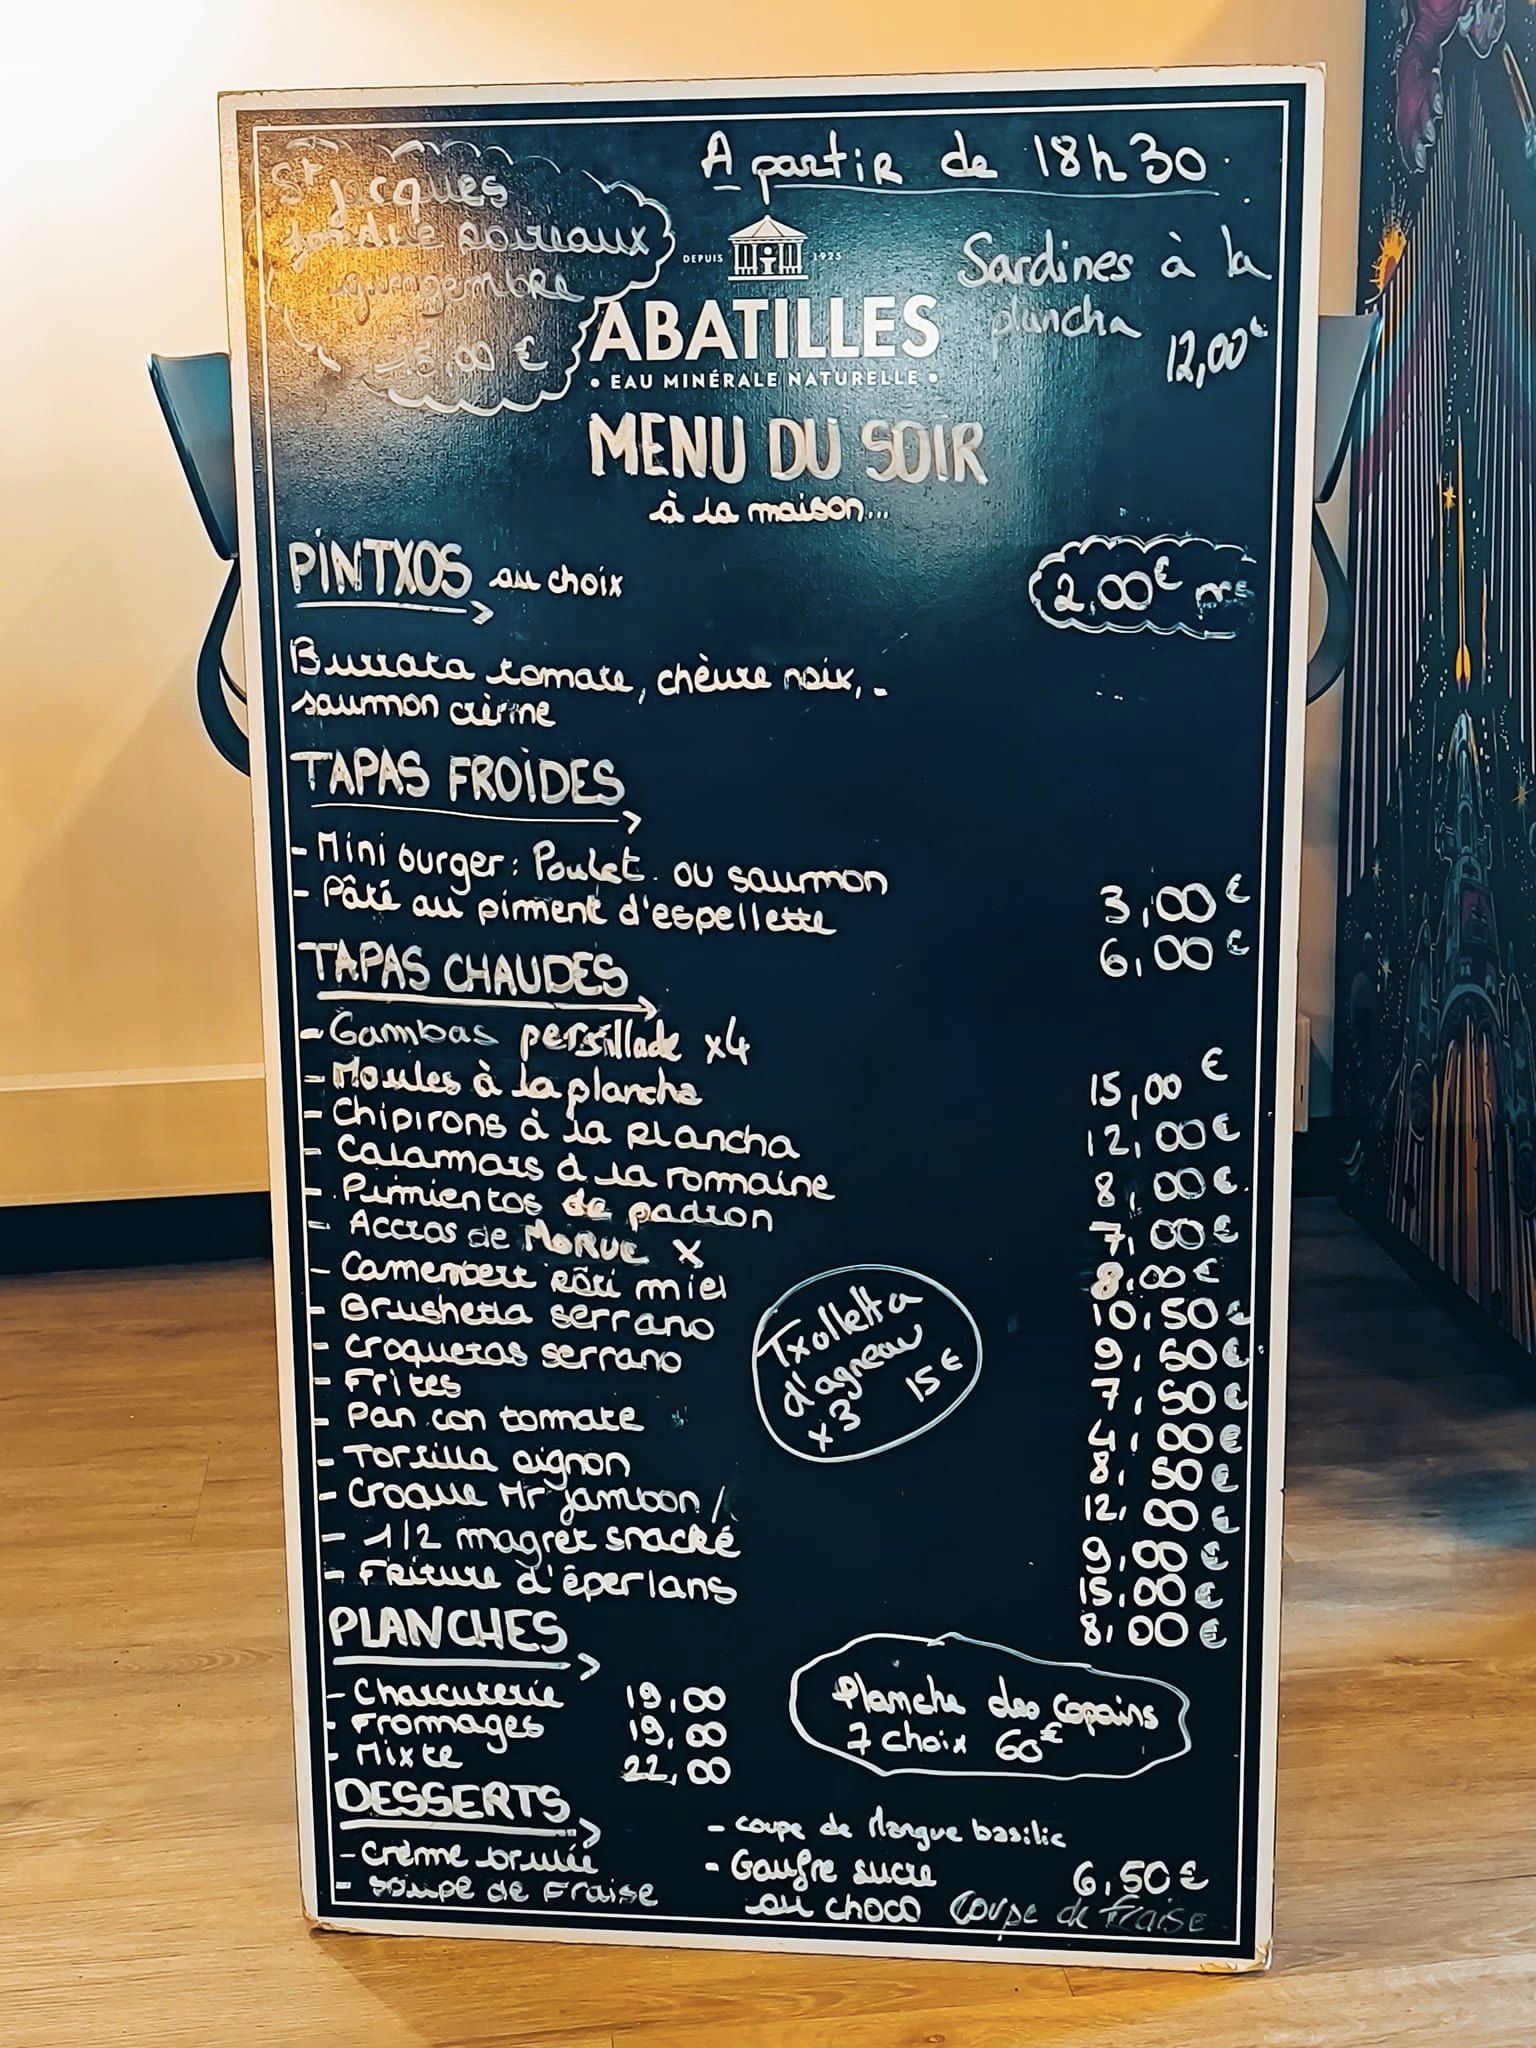 A partir de 18h30
St Jacques
fondue poireaux
gingembre
15,00 €
DEPUIS 1925
ABATILLES
• EAU MINÉRALE NATURELLE •
Sardines à la
plancha
12,00€
MENU DU SOIR
à la maison...
PINTXOS au choix 2,00€
Burrata tomate, chèvre noix,
saumon crème
TAPAS FROIDES
- Mini burger : Poulet ou saumon 3,00€
- Pâté au piment d'espellette 6,00€
TAPAS CHAUDES
- Gambas persillade x4 15,00 €
- Moules à la plancha 12,00€
- Chipirons à la plancha 8,00€
- Calamars à la romaine 7,00€
- Pimientos de padron 8,00€
- Accras de MORUE X 10,50€
- Camembert rôti miel 9,50€
- Brushetta serrano 7,50€
- Croquetas serrano 4,00€
- Frites 8,50€
- Pan con tomate 12,00€
- Torsilla oignon 9,00€
- Croque Mr jambon / 15,00€
- 1/2 magret snacké 8,00€
- Friture d'éperlans
Txolletta
d'agneau
x3 15€
PLANCHES
- Charcuterie 19,00
- Fromages 19,00
- Mixte 22,00
Planche des copains
7 choix 60€
DESSERTS
- Crème brulée
- Soupe de Fraise
- coupe de Mangue basilic
- Gaufre sucre 6,50€
au choco Coupe de fraise